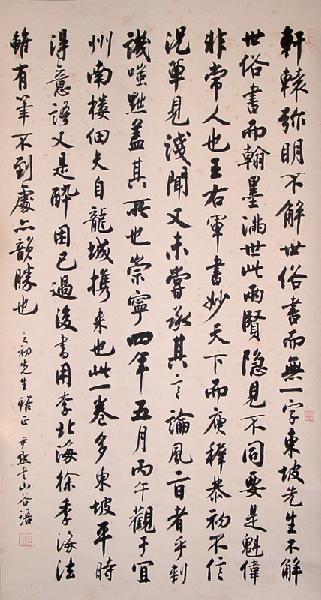 軒轅彌明不解世俗書而無一字東坡先生不解
世俗書而翰墨滿世此兩賢隱見不同要是魁偉
非常人也王右軍書妙天下而庾穉恭初不信
況單見淺聞又未嘗承其言論風旨者乎刺
譏嗤點蓋其所也崇寧四年五月丙午觀于宜
州南樓佃夫自龍城攜來也此一卷多東坡平時
得意語又是醉困已過後書用李北海徐季海法
雖有筆不到處亦韻勝也
之初先生雅正 尹默書山谷語